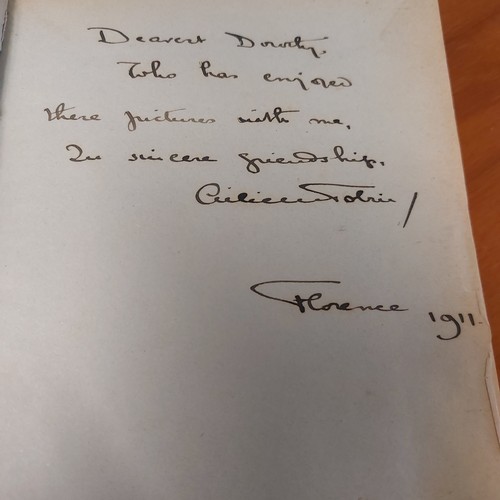 Dearest Dorothy.
Who has enjoyed
these pictures with me,
In sincere friendship.
Florence 1911.